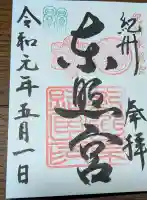 紀州
奉拝
東照宮
令和元年五月一日